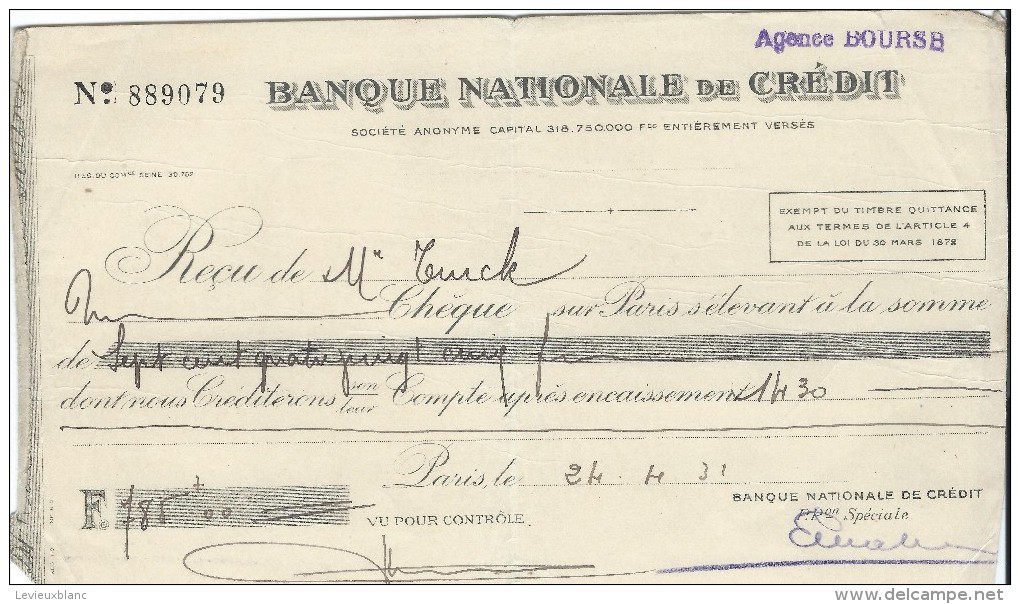 Agence BOURSE
Nº. 889079 BANQUE NATIONALE DE CRÉDIT
SOCIÉTÉ ANONYME CAPITAL 318.750.000 Fcs ENTIÈREMENT VERSÉS
REG. DU COMce SEINE 30.762
EXEMPT DU TIMBRE QUITTANCE
AUX TERMES DE L'ARTICLE 4
DE LA LOI DU 30 MARS 1872
Reçu de Mr Turck
Un Chèque sur Paris s'élevant à la somme
de Sept cent quatre vingt cinq f
dont nous Créditerons son/leur Compte après encaissement 1430
Paris, le 24.4 31
F. 785 00
BANQUE NATIONALE DE CRÉDIT
VU POUR CONTRÔLE
P. Pon Spéciale
Levieuxblanc
delcampe.net